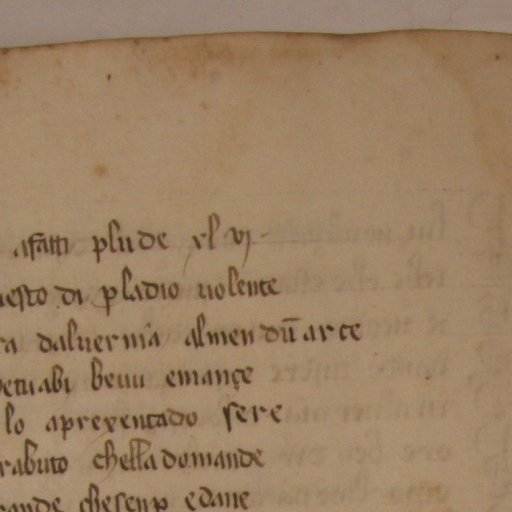 afatti plu de xl vj
uesto di p ladio uiolente
ra daluernia almen dũ arte
betu abi beuu emançe
lo aprexentado sere
rabuto chella domande
rande che senp edane